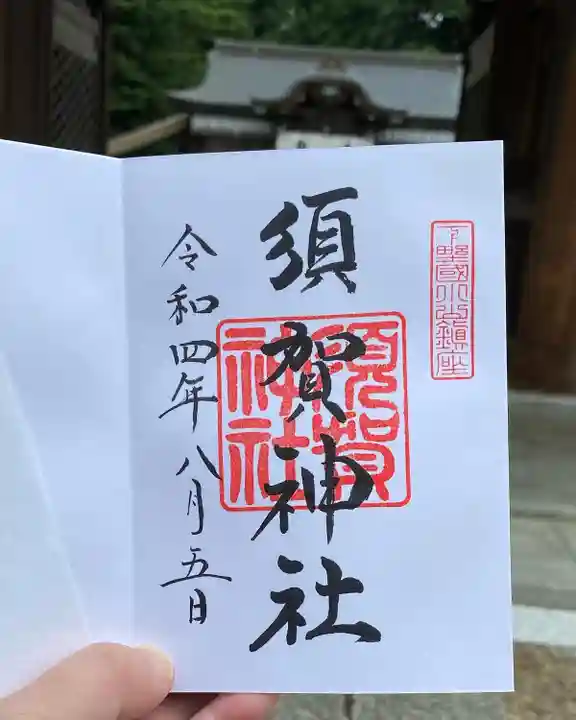 下野國小山鎮座
須賀神社
須賀神社
令和四年八月五日